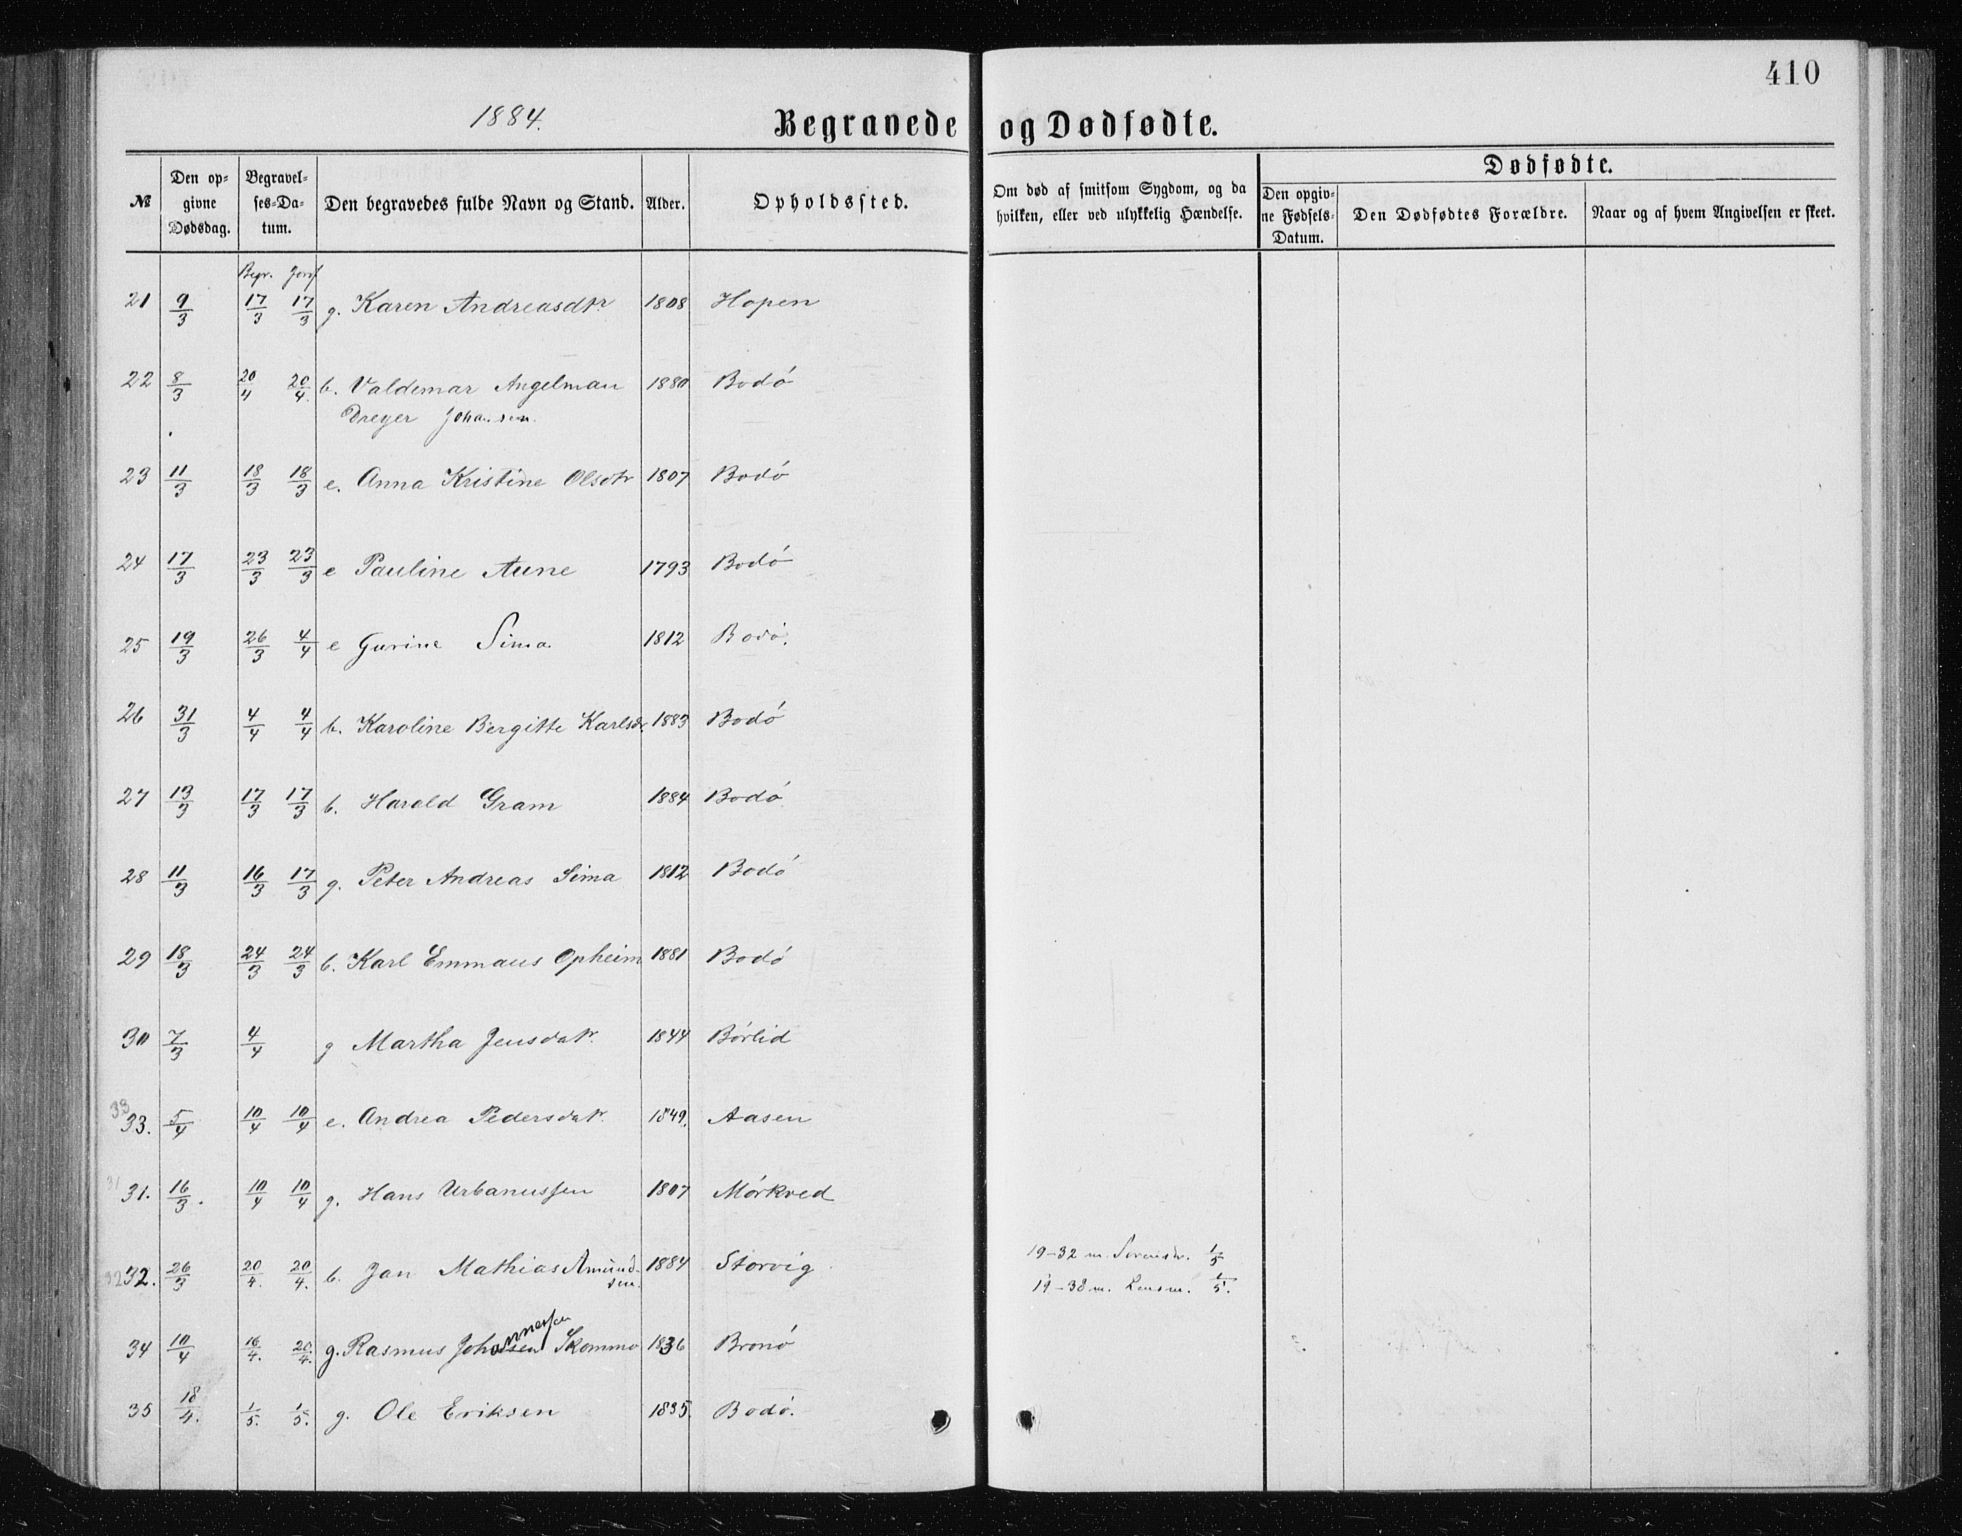 410
1884.
Begravede og Dødfødte.
№
Den opgivne Dødsdag.
Begravelses-Datum.
Den begravedes fulde Navn og Stand.
Alder.
Opholdssted.
Om død af smitsom Sygdom, og da hvilken, eller ved ulykkelig Hændelse.
Dødfødte.
Den opgivne Fødsels-Datum.
Den Dødfødtes Forældre.
Naar og af hvem Angivelsen er skeet.
Begr. Jordf
21 9/3 17/3 17/3 g. Karen Andreasdtr 1808 Hopen
22 8/3 20/4 20/4. b. Valdemar Angelman 1880 Bodó
Dreyer Johansen.
23 11/3 18/3 18/3 e. Anna Kristine Olsdtr 1807 Bodó
24 17/3 23/3 23/3 e Pauline Aune 1793 Bodó
25 19/3 26/3 4/4 e Gurine Sima 1812 Bodó.
26 31/3 4/4 4/4 b. Karoline Bergitte Karlsdr. 1883 Bodó
27 13/3 17/3 17/3 b. Harald Gram 1884 Bodó
28 11/3 16/3 17/3 g. Peter Andreas Sima 1812 Bodó
29 18/3 24/3 24/3 b. Karl Emmaus Opheim 1881 Bodó
30 7/3 4/4 g Martha Jensdatr. 1844 Börlid
33
33. 5/4 10/4 10/4 e. Andrea Pedersdatr. 1849. Aasen
31
31. 16/3. 10/4 10/4 g. Hans Urbanussen 1807 Mórkved
32
32. 26/3 20/4. 20/4. b. Jan Mathias Amundsen. 1884 Storvig 19-32 m. Sorensdr. 1/5
19-38 m. Lensm. 1/5.
34 10/4 16/4. 20/4. g. Rasmus Johannessen Skommo 1836 Bronó
35 18/4. 1/5. 1/5. g. Ole Eriksen 1835. Bodó.